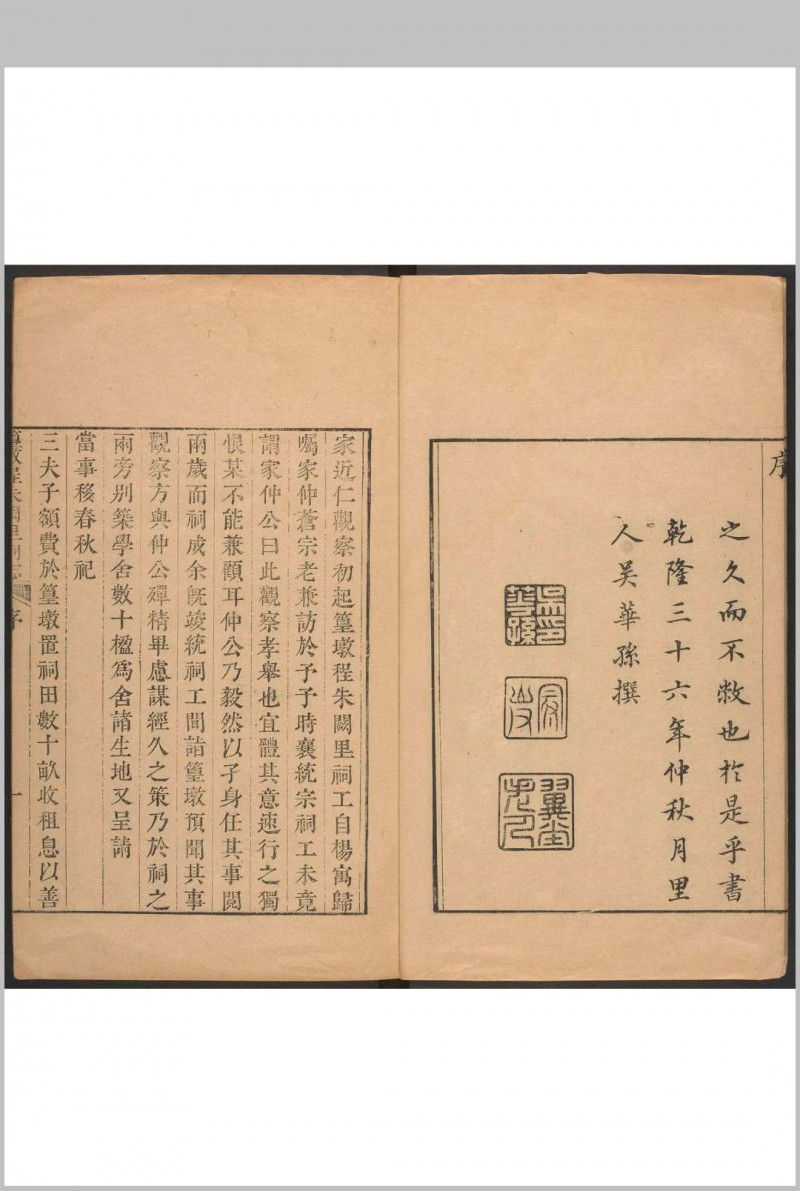 序
之久而不敝也於是乎書
乾隆三十六年仲秋月里
人吳華孫撰
吳印華孫
翼堂
家近仁觀察初起篁墩程朱闕里祠工自楊寓歸
囑家仲蒼宗老兼訪於予予時襄統宗祠工未竟
謂家仲公曰此觀察孝舉也宜體其意速行之獨
恨某不能兼顧耳仲公乃毅然以孑身任其事閱
兩歲而祠成余旣竣統祠工間詣篁墩預聞其事
觀察方與仲公殫精畢慮謀經久之策乃於祠之
兩旁别築學舍數十楹爲舍諸生地又呈請
當事移春秋祀
三夫子額費於篁墩置祠田數十畝收租息以善
篁墩程朱闕里祠志
序
一